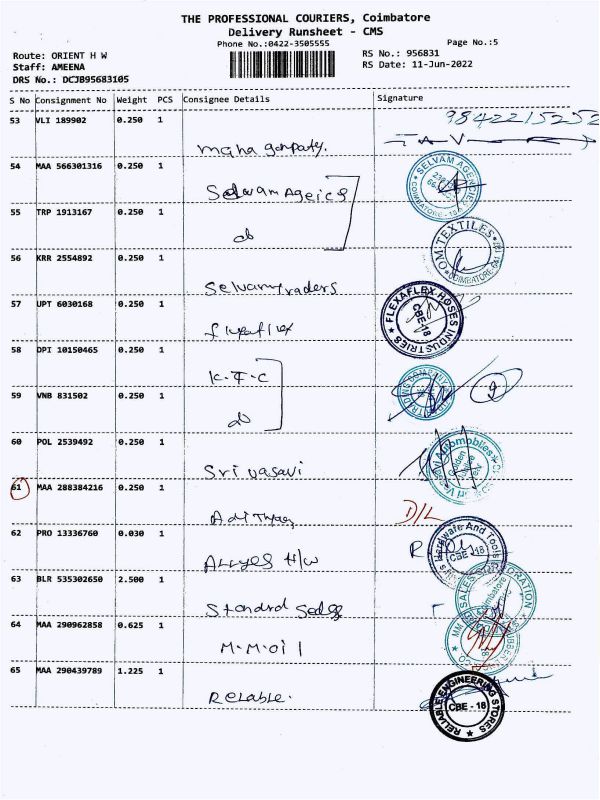 THE PROFESSIONAL COURIERS, Coimbatore
Delivery Runsheet - CMS
Phone No.:0422-3505555
Page No.:5
Route: ORIENT H W
Staff: AMEENA
DRS No.: DCJB95683105
RS No.: 956831
RS Date: 11-Jun-2022
S No Consignment No Weight PCS Consignee Details Signature
53 VLI 189902 0.250 1
9842215252
54 MAA 566301316 0.250 1
SELVAM AGENCIES
COIMBATORE
55 TRP 1913167 0.250 1
do
OM TEXTILES
COIMBATORE-641
56 KRR 2554892 0.250 1
Selvam traders
57 UPT 6030168 0.250 1
FLEXAFLEX HOSES INDUSTRIES
CBE-18
58 DPI 10150465 0.250 1
K.T.C
TRADING COMPANY
59 VNB 831502 0.250 1
do
2
60 POL 2539492 0.250 1
Sri vasavi
Automobiles
61 MAA 288384216 0.250 1
D/L
62 PRO 13336760 0.030 1
H/W
R
Hardware And Tools
CBE-18
63 BLR 535302650 2.500 1
SALES CORPORATION
64 MAA 290962858 0.625 1
M.M.oil
65 MAA 290439789 1.225 1
Relable.
RELIABLE ENGINEERING STORES
CBE - 18